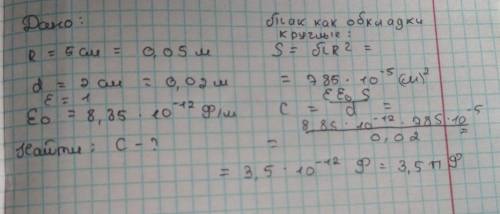 Дано:
R = 5 см = 0,05 м
d = 2 см = 0,02 м
ε = 1
ε0 = 8,85 · 10^-12 Ф/м
Найти: C - ?
так как обкладки
круглые:
S = πR² =
= 785 · 10^-5 (м)²
C = εε0 S / d =
= 8,85 · 10^-12 · 785 · 10^-5 / 0,02 =
= 3,5 · 10^-12 Ф = 3,5 пФ